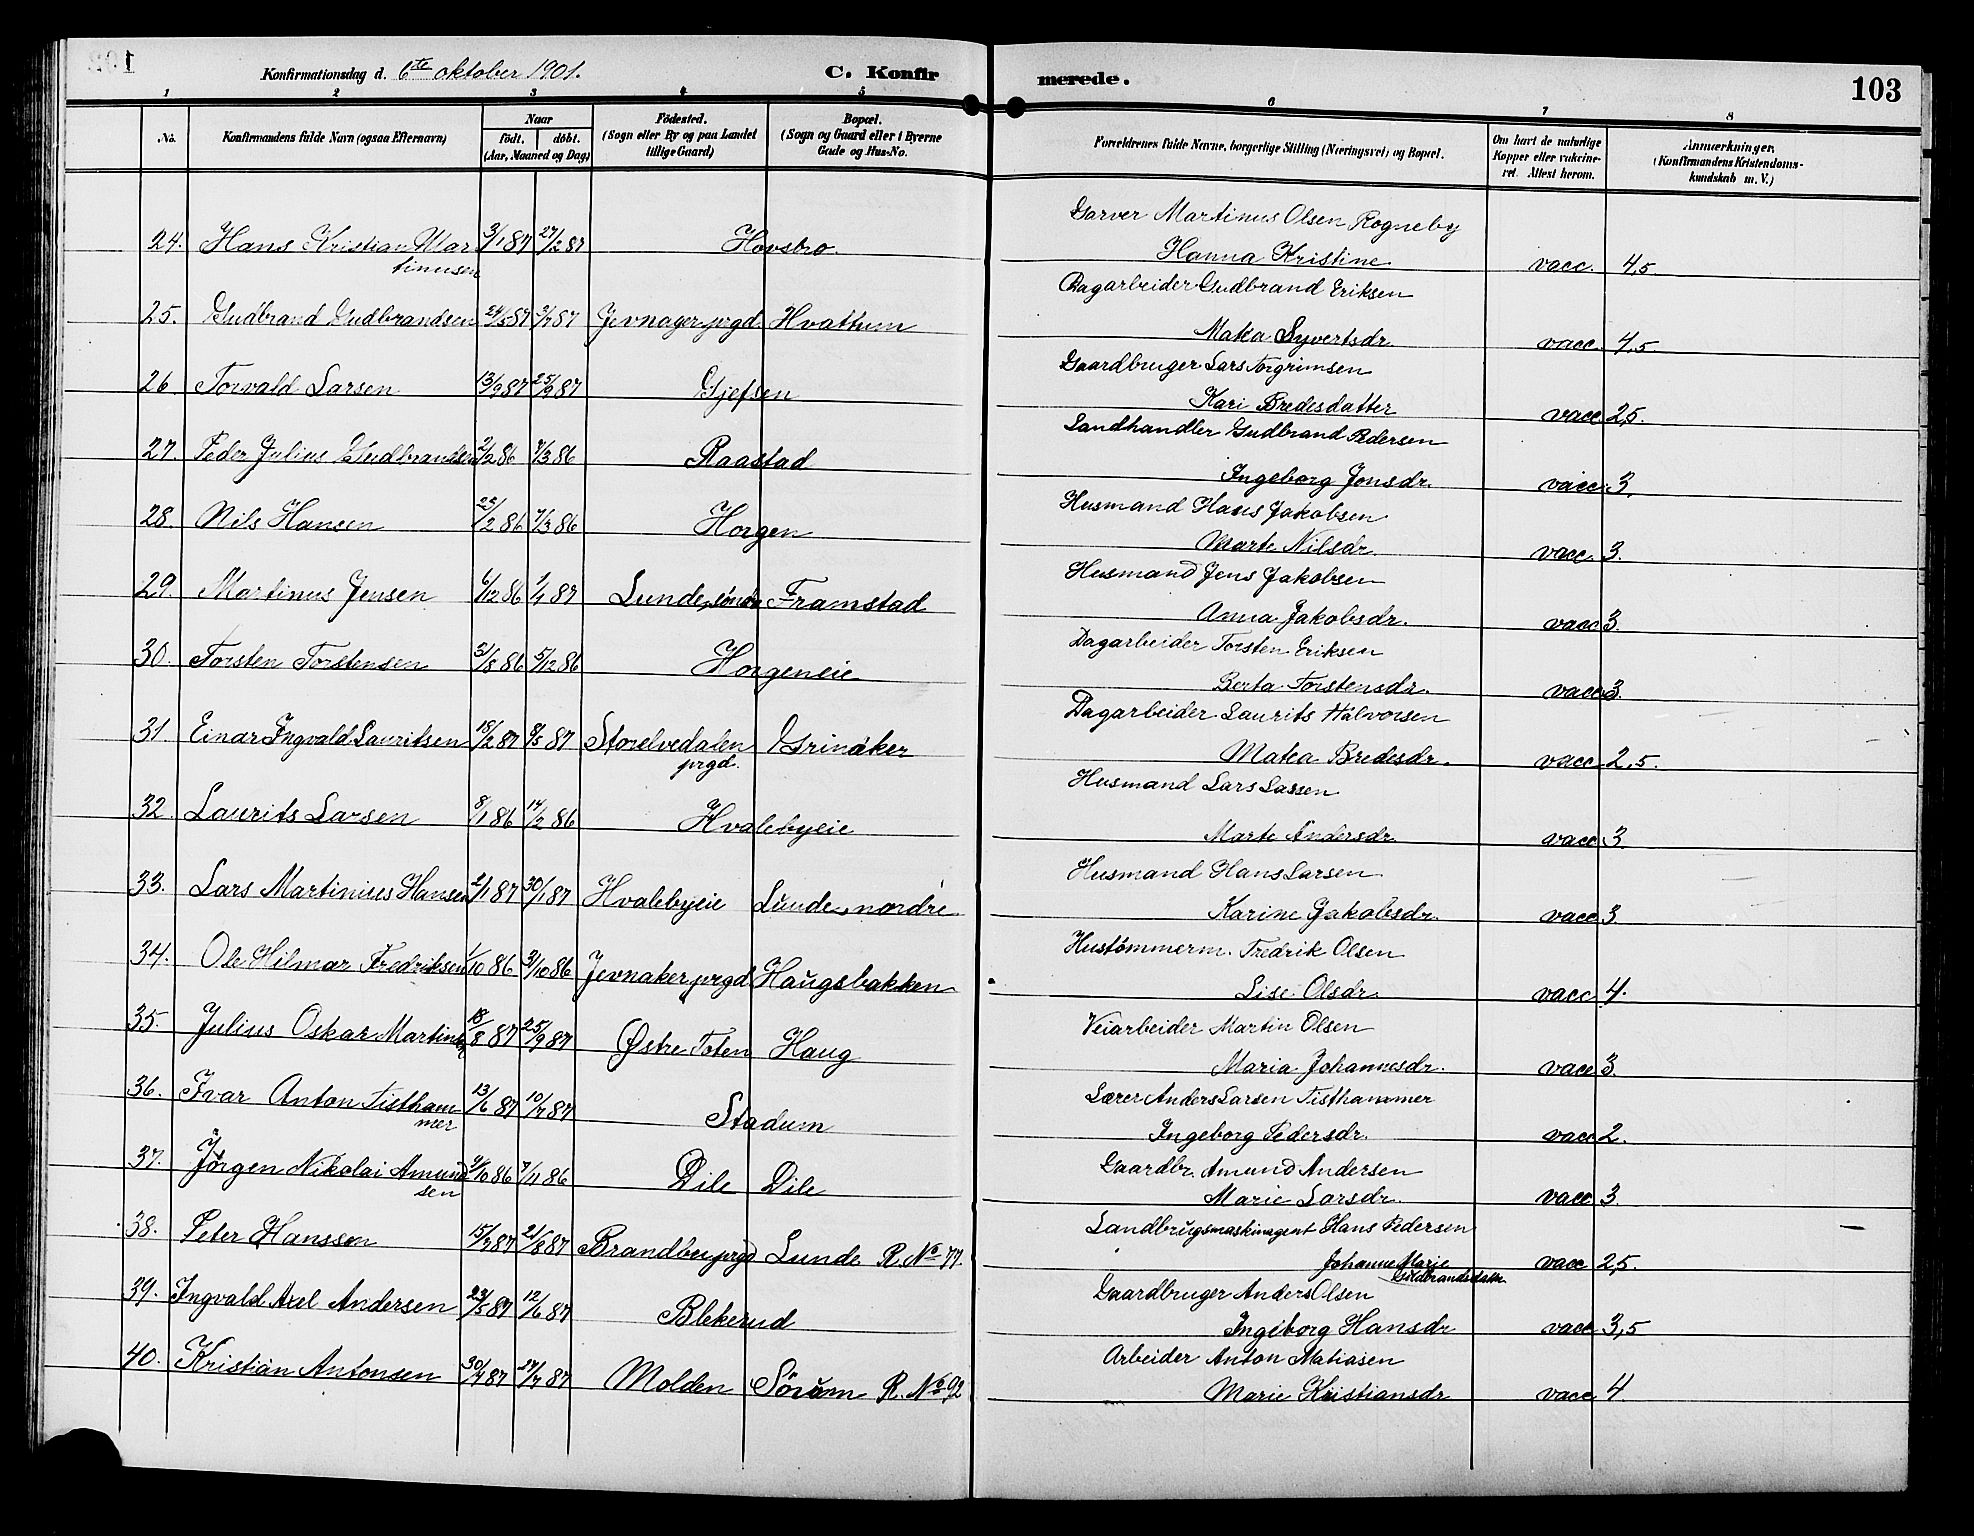 Konfirmationsdag d. 6te oktober 1901. C. Konfirmerede. 103
1 2 3 4 5 6 7 8
No. Konfirmandens fulde Navn (ogsaa Efternavn) Naar födt. döbt. (Aar, Maaned og Dag) Födested. (Sogn eller By og paa Landet tillige Gaard) Bopæl. (Sogn og Gaard eller i Byerne Gade og Hus-No. Forældrenes fulde Navne, borgerlige Stilling (Næringsvei) og Bopæl. Om havt de naturlige Kopper eller vakcineret. Attest herom. Anmærkninger. (Konfirmandens Kristendomskundskab m. V.)
Garver Martinus Olsen Rogneby
24. Hans Kristian Martinusen 3/1 87 27/2 87 Hovsbro Hanna Kristine vacc. 4,5.
Dagarbeider Gudbrand Eriksen
25. Gudbrand Gudbrandsen 24/5 87 3/7 87 Jevnager prgd Hvattum Matea Syvertsdr. vacc. 4,5.
Gaardbruger Lars Torgrimsen
26 Torvald Larsen 13/9 87 25/9 87 Gjefsen Kari Bredesdatter vacc. 2,5.
Landhandler Gudbrand Pedersen
27. Peder Julius Gudbrandsen 2/2 86 7/3 86 Raastad Ingeborg Jonsdr. vacc. 3.
Husmand Hans Jakobsen
28. Nils Hansen 23/2 86 7/3 86 Horgen Marte Nilsdr. vacc. 3.
Husmand Jens Jakobsen
29. Martinus Jensen 6/12 86 1/1 87 Lunde, söndre Framstad Anna Jakobsdr. vacc 3.
Dagarbeider Torsten Eriksen
30. Torsten Torstensen 31/8 86 5/12 86 Horgeneie Berta Torstensdr. vacc 3.
Dagarbeider Laurits Halvorsen
31. Einar Ingvald Lauritsen 18/2 87 8/5 87 Storelvedalen prgd. Grinaker Matea Bredesdr. vacc. 2,5.
Husmand Lars Larsen
32. Laurits Larsen 8/1 86 14/2 86 Hvalebyeie Marte Andersdr. vacc 3.
Husmand Hans Larsen
33. Lars Martinius Hansen 2/1 87 30/1 87 Hvalebyeie Lunde, nordre Karine Jakobsdr. vacc 3
Hustömmerm. Fredrik Olsen
34. Ole Hilmar Fredriksen 1/10 86 31/10 86 Jevnaker prgd Haugsbakken Lise Olsdr. vacc 4.
Veiarbeider Martin Olsen
35. Julius Oskar Martinsen 18/8 87 25/9 87 Østre Toten Haug Maria Johannesdr. vacc 3.
Lærer Anders Larsen Tisthammer
36. Ivar Anton Tisthammer 13/6 87 10/7 87 Stadum Ingeborg Pedersdr. vacc 2.
Gaardbr. Amund Andersen
37. Jörgen Nikolai Amundsen 9/10 86 7/11 86 Dile Dile Marie Larsdr. vacc 3
Landbrugsmaskinagent Hans Pedersen
38. Peter Hanssen 15/7 87 21/8 87 Brandbu prgd Lunde R. No 77. Johanne Marie Gudbrandsdatter vacc 2,5.
Gaardbruger Anders Olsen
39. Ingvald Axel Andersen 23/5 87 12/6 87 Blekerud Ingeborg Hansdr vacc 3,5
Arbeider Anton Matiasen
40. Kristian Antonsen 30/4 87 24/7 87 Molden Sörum R. No 92 Marie Kristiansdr vacc 4